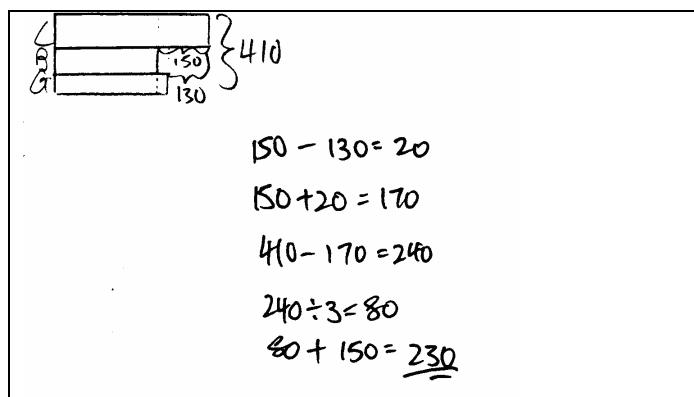 L
B 150 410
G 130
150 - 130 = 20
150 + 20 = 170
410 - 170 = 240
240 ÷ 3 = 80
80 + 150 = 230